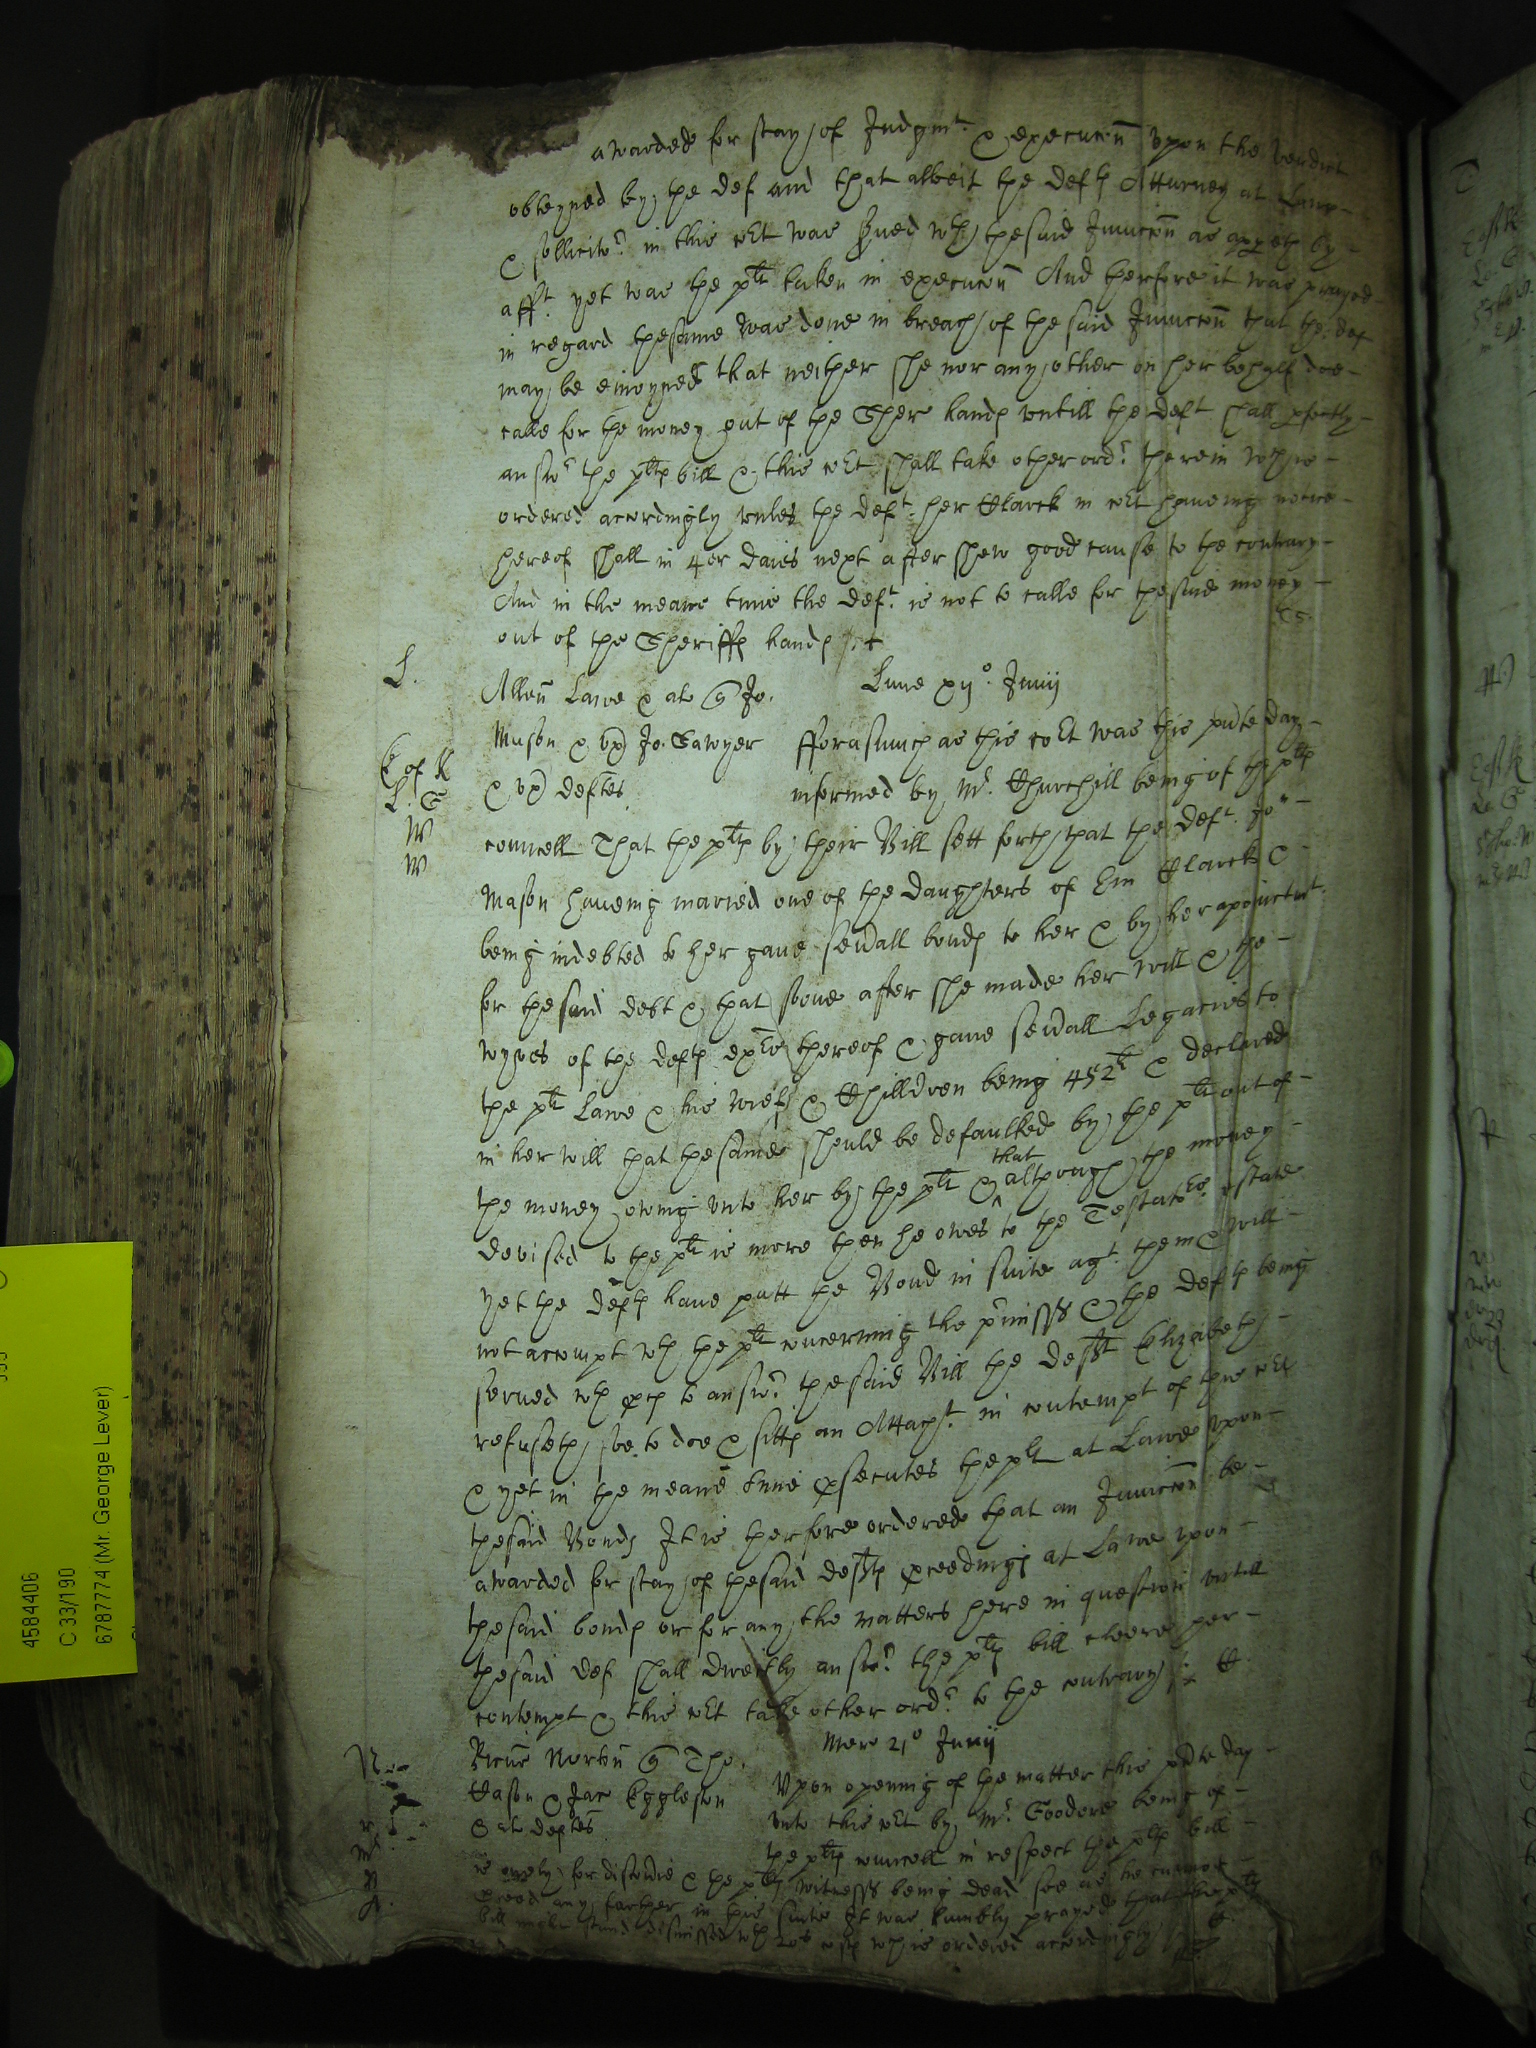 awarded for stay of Judgmt. & execucon upon the verdict
obteyned by the def and that albeit the defts Atturney at Lawe
& sollicitor in this cort was served wth the said Iniunccon as appeth by
afft. yet was the plt taken in execucon And therfore it was prayed
in regard the same was done in breach of the said Iniunccon that the def
may be enioyned that neither she nor any other on her behalf doe
calle for the money out of the Sher hands untill the deft shall pfectly
answr the plts bill & this cort shall take other ordr therein wch is
ordered accordingly unles the deft. her Clarck in cort haveing notice
hereof shall in 4er daies next after shew good cause to the contrary
And in the meane time the deft. is not to calle for the said money
out of the Sheriffs hands
L.
Lune xij° Junij
Allen Lawe & al v Jo.
Mason & ux Jo. Sawyer
& ux deftes
E of K
L. G
W
W
fforasmuch as this cort was this pnte day
informed by Mr. Churchill being of the plts
councell That the plts by their Bill sett forth that the deft. Jon
Mason haveing maried one of the daughters of Em Clarck &
being indebted to her gave sevall bonds to her & by her apointmt.
for the said debt & that soone after she made her will & the
wyves of the defts extrs thereof & gave sevall Legacies to
the plt Lawe & his wief & Chilldren being 452li & declared
in her will that the same should be defaulked by the plt out of
the money oweing unto her by the plt & that although the money
devised to the plt is more then he owes to the Testators estate
yet the defts have putt the Bond in suite agt. them & will
not accompt wth the plt concerning the pmisses & the defts being
served wth pces to answr the said Bill the deft Elizabeth
refuseth soe to doe & sitts an Attacht. in contempt of this cort
& yet in the meane time psecutes the plt at Lawe upon
the said Bonds It is therfore ordered that an Iniunccon be
awarded for stay of the said defts pceedings at Lawe upon
the said bonds or for any the matters here in question untill
the said def shall directly answr the plts bill cleere her
contempt & this cort take other ordr to the contrary
N
Mer 21° Junij
Ricus Norton v Tho.
Eason & Jac Eggleston
& al deftes
Upon opening of the matter this pnte day
unto this cort by Mr. Goodere being of
the plts councell in respect the plts bill
is onely for discovie & the plts witnesses being dead soe as he cannot
pceed any farther in this suite It was humbly prayed that the plts
bill might stand dismissed wth 20s costs wch is ordered accordingly
4584406
C 33/190
6787774 (Mr. George Lever)